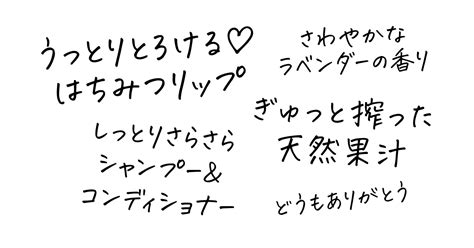 うっとりとろける♡
はちみつリップ
しっとりさらさら
シャンプー&
コンディショナー
さわやかな
ラベンダーの香り
ぎゅっと搾った
天然果汁
どうもありがとう